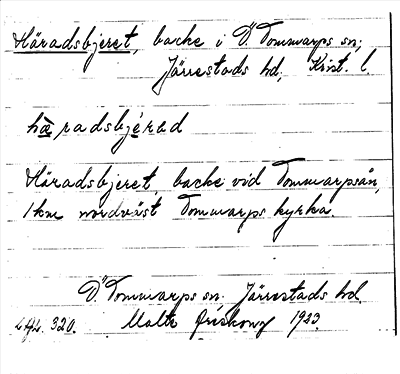 Häradsbjeret, backe i Ö. Tommarps sn;
Järrestads hd; Krist. l.
hæ̀radsbjérəd
Häradsbjeret, backe vid Tommarpsån,
1 km nordväst Tommarps kyrka.
Ö. Tommarps sn. Järrestads hd.
320. Malte 1923.